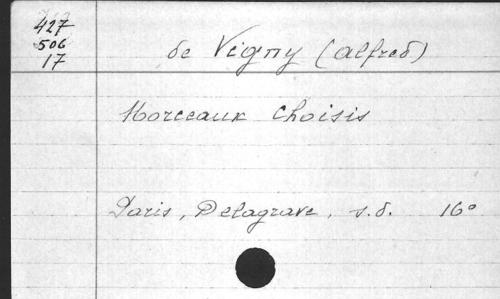 427
506
17
de Vigny (Alfred)
Morceaux choisis
Paris, Delagrave, s.d. 16°